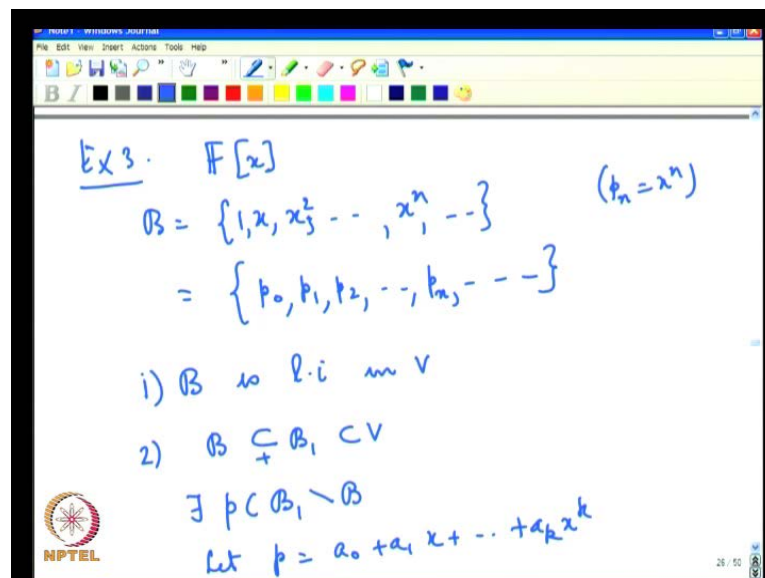 Note1 - Windows Journal
File Edit View Insert Actions Tools Help
B I
Ex 3. 𝔽[x]
B = {1, x, x², - - , xⁿ, - -} (pₙ = xⁿ)
= {p₀, p₁, p₂, - -, pₙ, - - -}
i) B is l.i in V
2) B ⊊ B₁ ⊂ V
∃ p ⊂ B₁ \ B
Let p = a₀ + a₁ x + - - + aₖ xᵏ
NPTEL
26 / 50